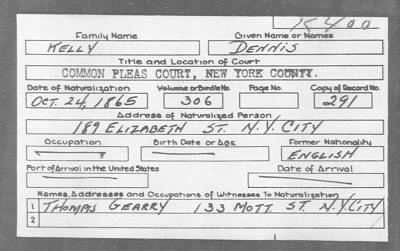 K400
Family Name Given Name or Names
KELLY DENNIS
Title and Location of Court
COMMON PLEAS COURT, NEW YORK COUNTY.
Date of Naturalization Volume or Bundle No. Page No. Copy of Record No.
OCT. 24, 1865 306 291
Address of Naturalized Person
189 ELIZABETH ST. N.Y. CITY
Occupation Birth Date or Age Former Nationality
ENGLISH
Port of Arrival in the United States Date of Arrival
Names, Addresses and Occupations of Witnesses To Naturalization
1 THOMAS GEARRY 133 MOTT ST. N.Y. CITY
2